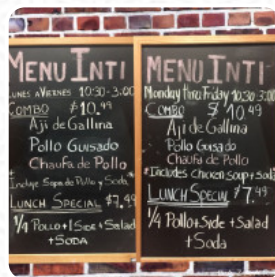 MENU INTI
LUNES A VIERNES 10:30-3:00
COMBO $10.99
Aji de Gallina
Pollo Guisado
Chaufa de Pollo
*Incluye Sopa de Pollo y Soda*
LUNCH SPECIAL $7.49
1/4 POLLO + 1 SIDE + Salad
+ SODA
MENU INTI
Monday thru Friday 10:30-3:00
COMBO $10.49
Aji de Gallina
Pollo Guisado
Chaufa de Pollo
*Includes Chicken Soup + Soda
LUNCH SPECIAL $7.49
1/4 Pollo + Side + Salad
+ Soda